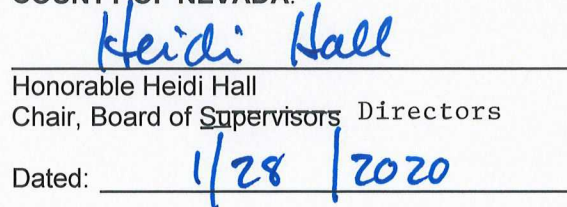 COUNTY OF NEVADA:
Heidi Hall
Honorable Heidi Hall
Chair, Board of Supervisors Directors
Dated: 1/28/2020